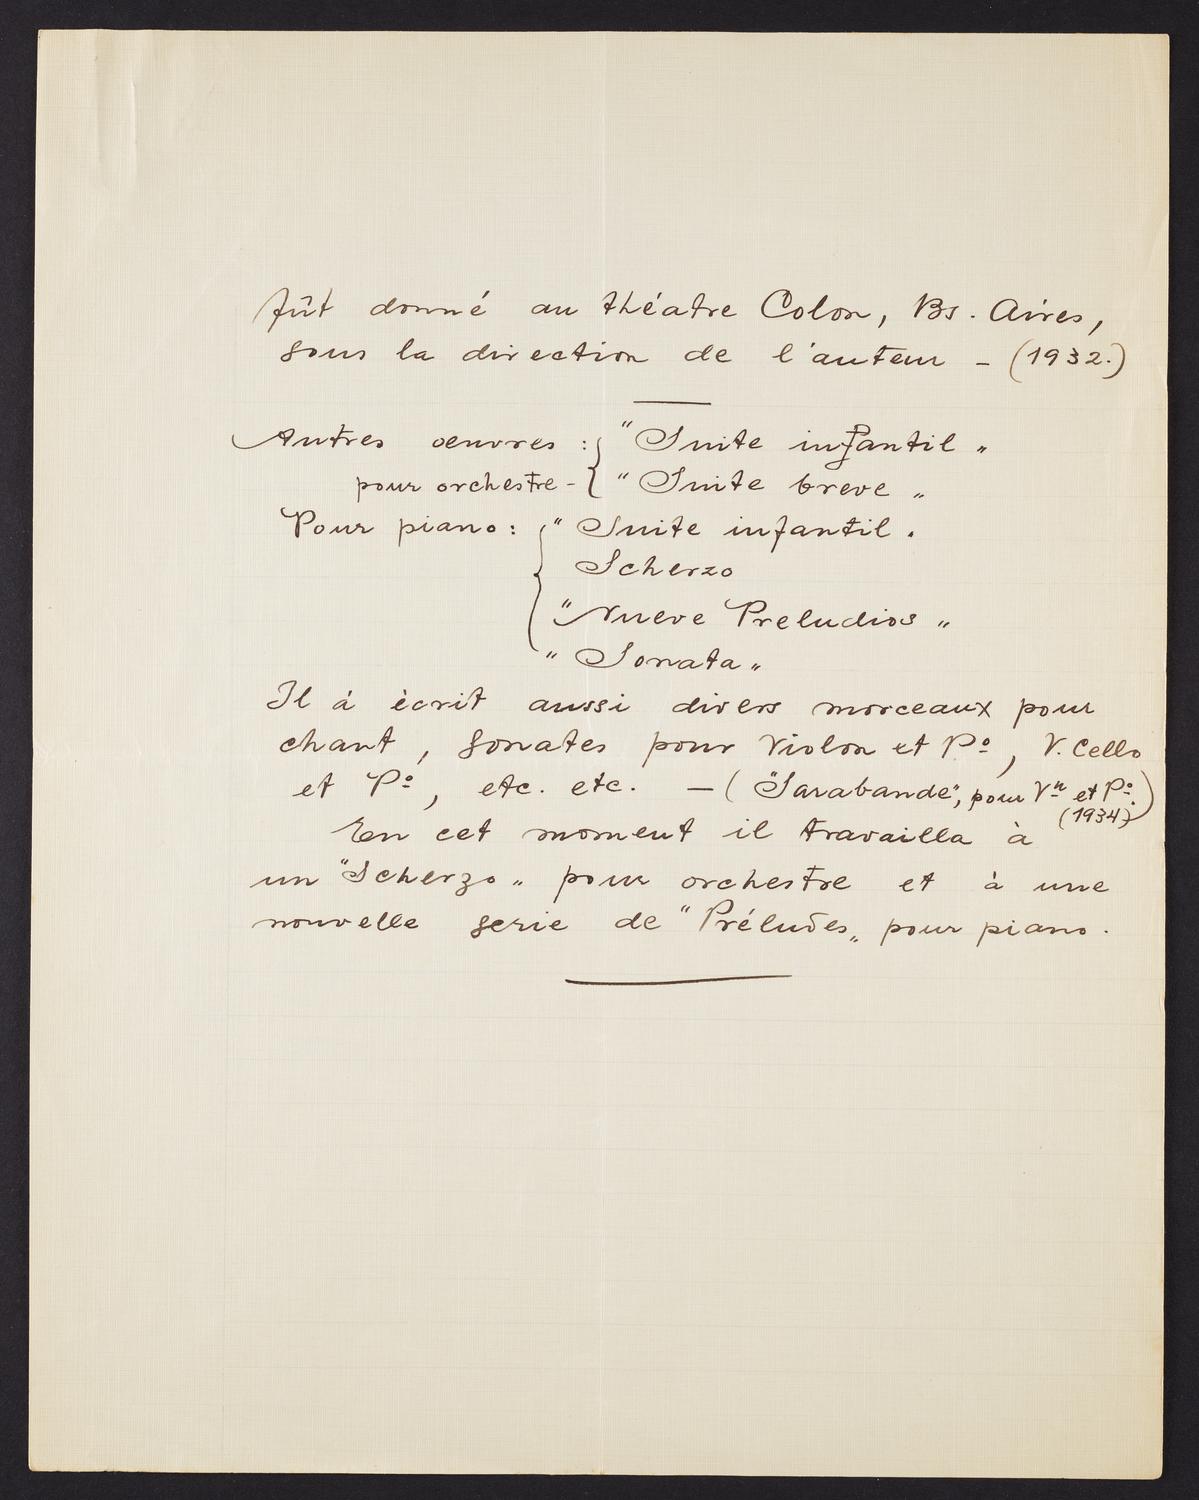 fût donné au théatre Colon, Bs. Aires,
sous la direction de l'auteur - (1932.)
Autres oeuvres : { "Suite infantil"
pour orchestre - { "Suite breve"
Pour piano : { "Suite infantil.
Scherzo
"Nueve Preludios"
"Sonata"
Il á ècrit aussi divers morceaux pour
chant, sonates pour Violon et Pº, V. Cello
et Pº, etc. etc. - ("Sarabande", pour Vⁿ et Pº.)
(1934)
En cet moment il travailla à
un "Scherzo" pour orchestre et à une
nouvelle serie de "Préludes" pour piano.